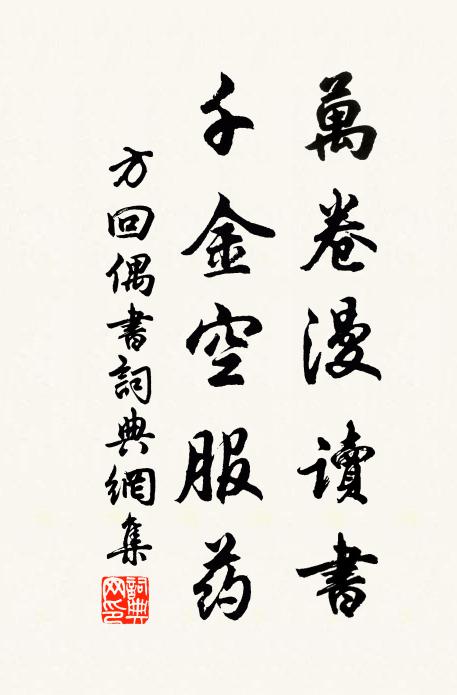 萬卷漫讀書
千金空服药
方回偶書詞典網集
詞典網印